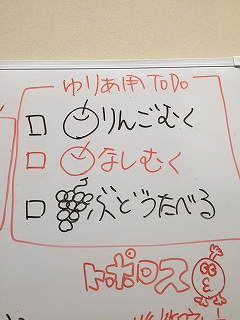 ゆりあ用 ToDo
りんごむく
なしむく
ぶどうたべる
トポロス